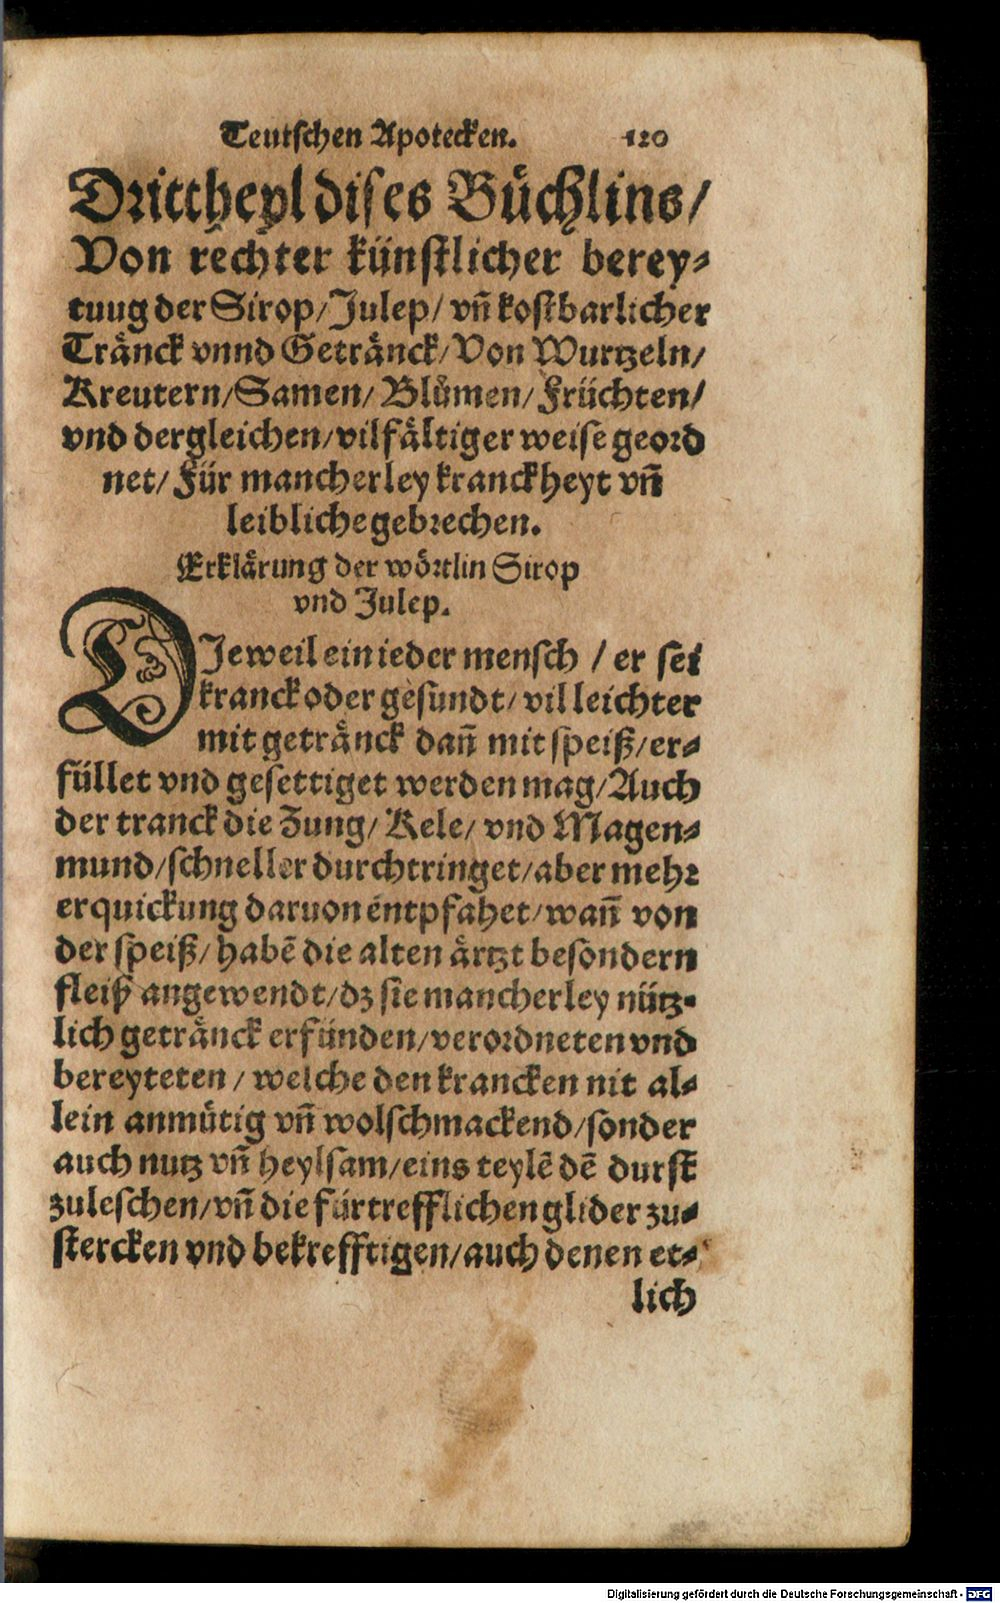 Teutschen Apotecken. 120
Drittheyl dises Büchlins/
Von rechter künstlicher berey⸗
tuug der Sirop/ Julep/ vn̄ kostbarlicher
Tränck vnnd Getränck/ Von Wurtzeln/
Kreutern/ Samen/ Blůmen/ Früchten/
vnd dergleichen/ vilfältiger weise geord
net/ Für mancherley kranckheyt vn̄
leibliche gebrechen.
Erklärung der wörtlin Sirop
vnd Julep.
DJeweil ein ieder mensch / er sei
kranck oder gesundt/ vil leichter
mit getränck dan̄ mit speiß/ er⸗
füllet vnd gesettiget werden mag/ Auch
der tranck die Zung/ Kele/ vnd Magen⸗
mund/ schneller durchtringet/ aber mehr
erquickung daruon entpfahet/ wan̄ von
der speiß/ habē die alten ärtzt besondern
fleiß angewendt/ dz sie mancherley nütz⸗
lich getränck erfünden/ verordneten vnd
bereyteten / welche den krancken nit al⸗
lein anmütig vn̄ wolschmackend/ sonder
auch nutz vn̄ heylsam/ eins teylē dē durst
zuleschen/ vn̄ die fürtrefflichen glider zu⸗
stercken vnd bekrefftigen/ auch denen et⸗
lich
Digitalisierung gefördert durch die Deutsche Forschungsgemeinschaft - DFG